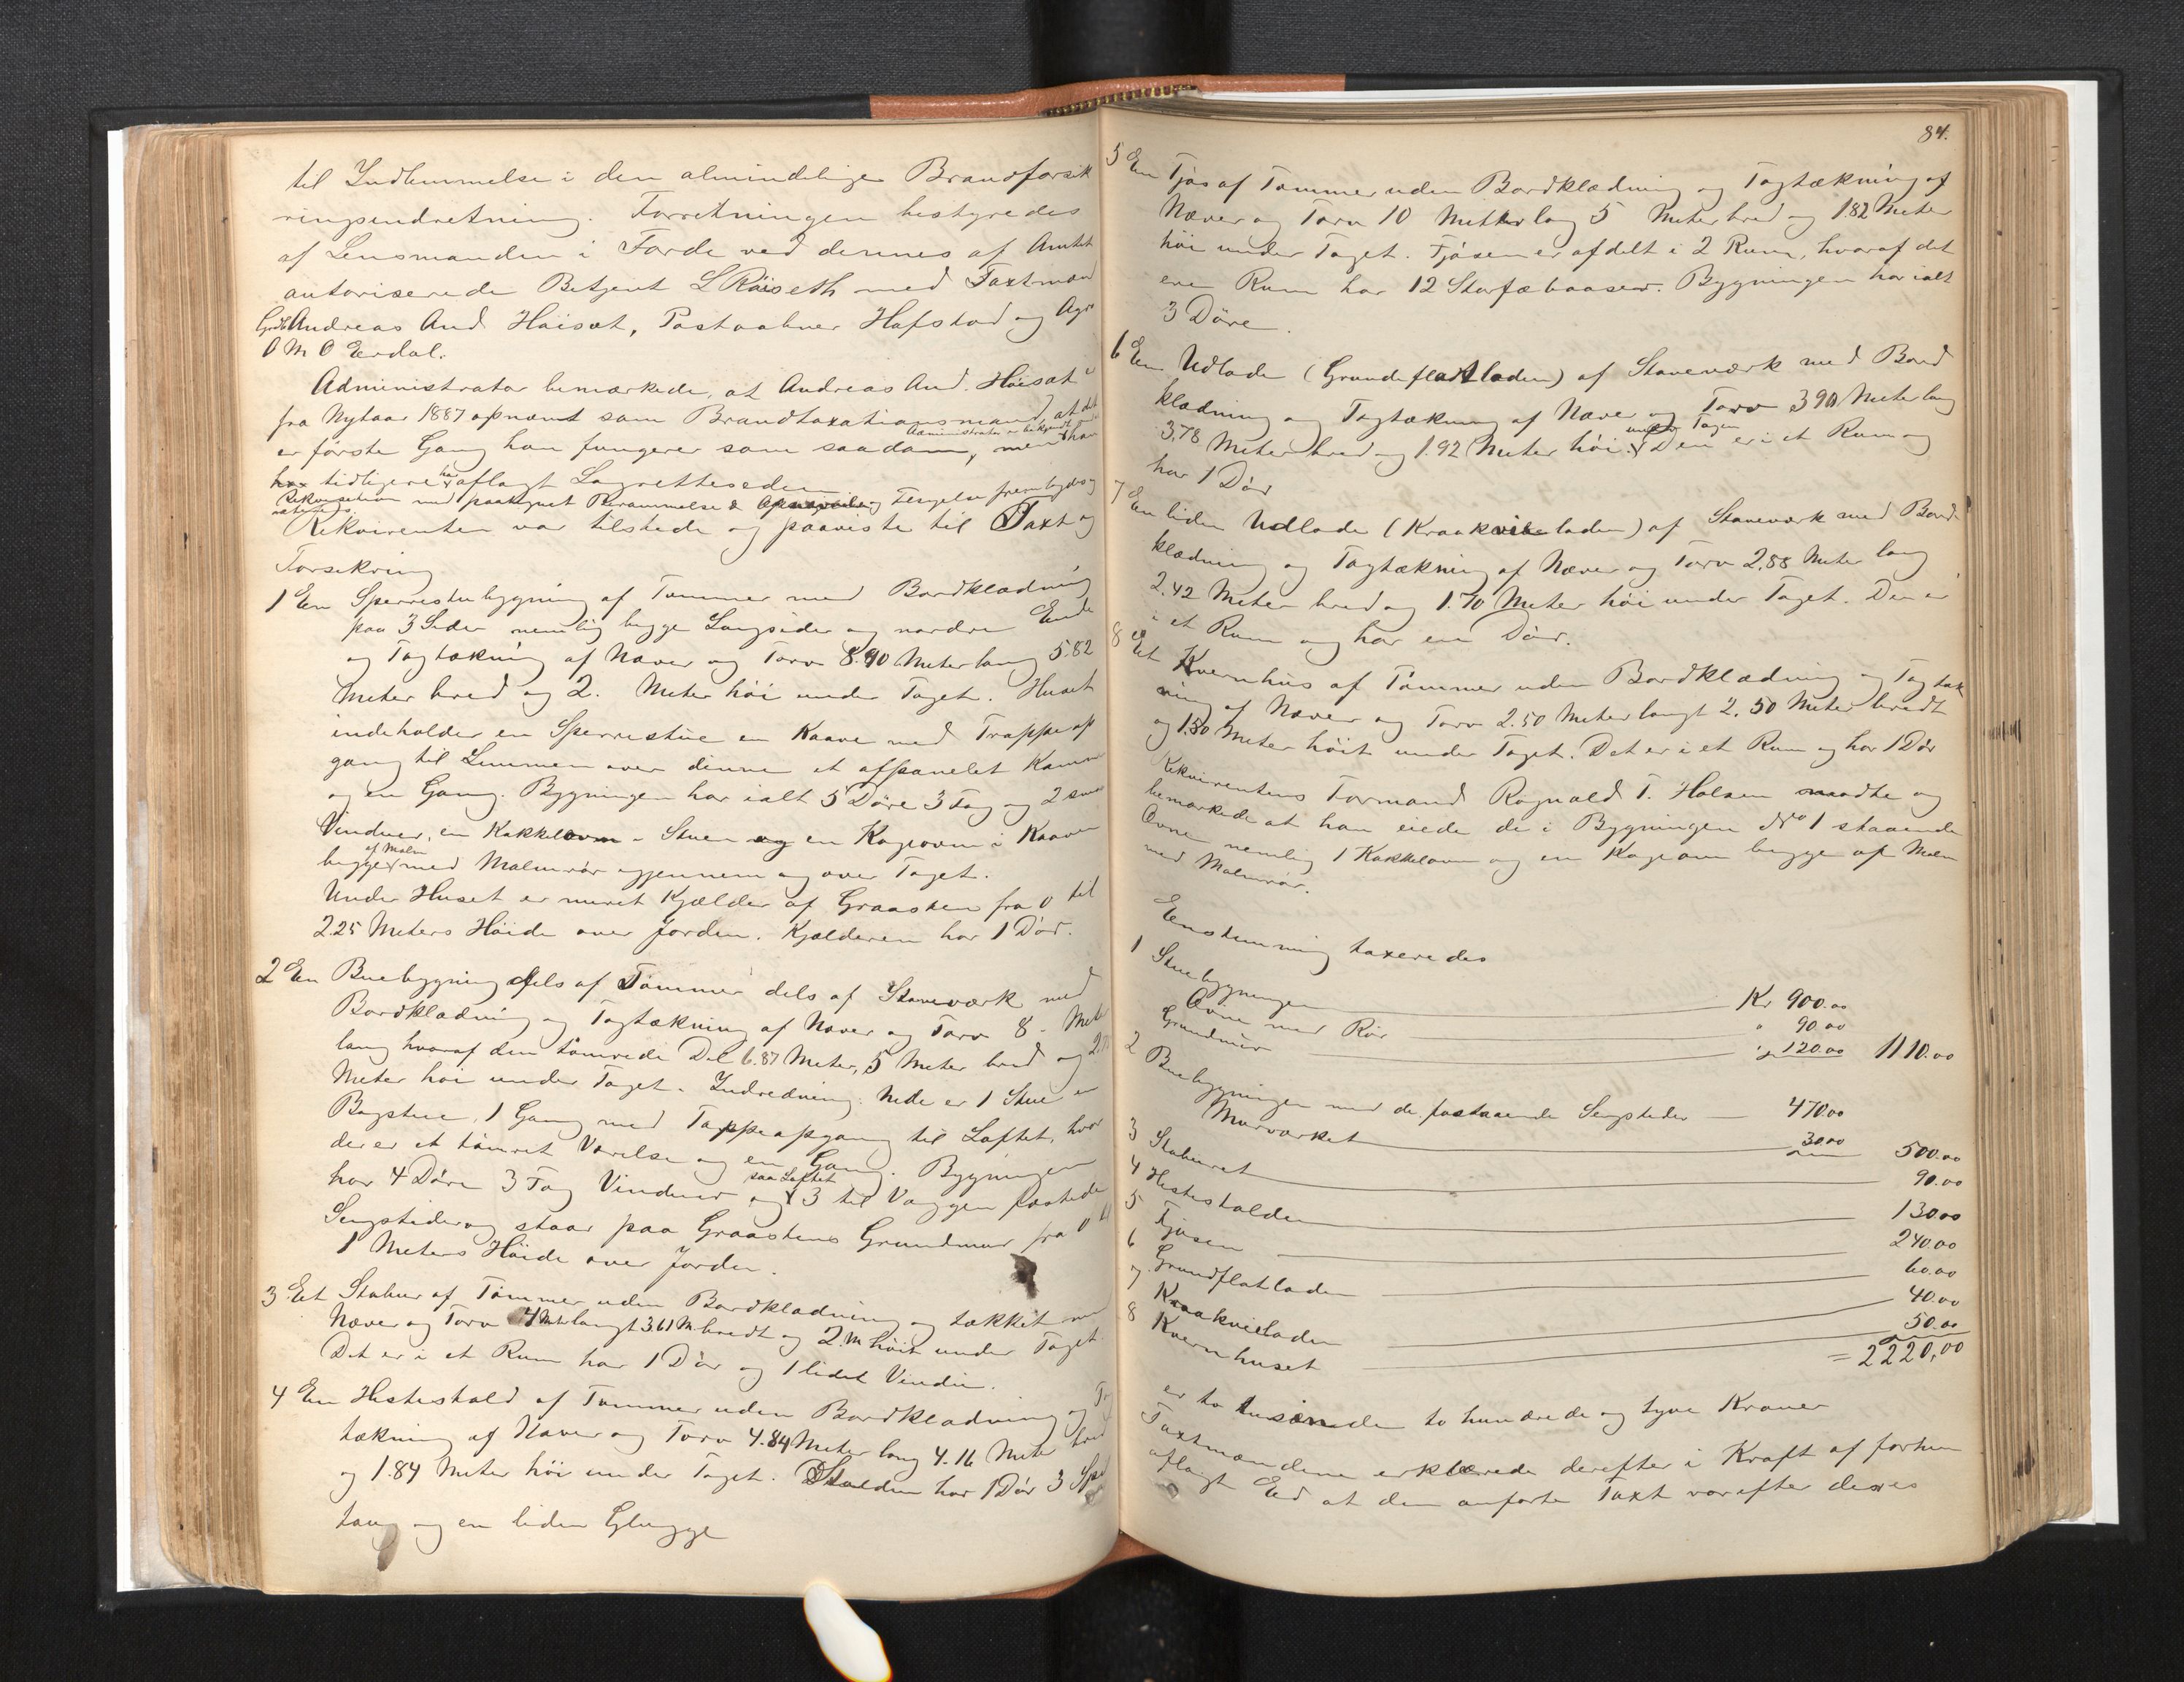 til Indlemmelse i den almindelige Brandforsik
ringsindretning. Forretningen bestyredes
af Lensmanden i Førde ved dennes af Amtet
autoriserede Betjent L Røiseth med Taxtmænd
Grdb Andreas And Høisæt, Postaabner Hafstad og Agr
O M O Erdal.
Administrator bemærkede, at Andreas And. Høisæt
fra Nytaar 1887 opnævnt som Brandtaxationsmand, at det
er første Gang han fungerer som saadan, men han
Administrator bekjendt
har tidligere har aflagt Lagretteseden
Rekvisition med paategnet Berammelse & Opnævnelse fremlagdes og
Rekvirenten var tilstede og paaviste til Taxt og
Forsikring
1 En Sperrestuebygning af Tømmer med Bordklædning
paa 3 Sider nemlig begge Langsider og nordre Ende
og Tagtækning af Næver og Torv 8.90 Meter lang 5.82
Meter bred og 2. Meter høi under Taget. Huset
indeholder en Sperrestue en Kaave med Trappeop
gang til Lemmen over denne et afpanelet Kammer
og en Gang. Bygningen har ialt 5 Døre 3 Fag og 2 smaa
Vinduer, en Kakkelovn i Stuen og en Kogeovn i Kaaven
begge af Malm med Malmrør igjennem og over Taget.
Under Huset er muret Kjælder af Graasten fra 0 til
2.25 Meters Høide over Jorden. Kjælderen har 1 Dør.
2 En Buebygning dels af Tømmer dels af Staveværk med
Bordklædning og Tagtækning af Næver og Torv 8 - Meter
lang hvoraf den tømrede Del 6.87 Meter, 5 Meter bred og
Meter høi under Taget. Indredning: Nede er 1 Stue en
Bagstue, 1 Gang med Trappeopgang til Loftet, hvor
der er et tømret Værelse og en Gang. Bygningen
har 4 Døre 3 Fag Vinduer og paa Loftet 3 til Væggen fæstede
Sengsteder og staar paa Graastens Grundmur fra 0 til
1 Meters Høide over Jorden.
3 Et Stabur af Tømmer uden Bordklædning og tækket med
Næver og Torv 4 Mt langt 3.61 M bredt og 2. M høit under Taget
Det er i et Rum har 1 Dør og 1 lidet Vindu.
4 En Hestestald af Tømmer uden Bordklædning og Tag
tækning af Næver og Torv 4.84 Meter lang 4.16 Meter bred
og 1.84 Meter høi under Taget. Stalden har 1 Dør 3 Spil
taug og en liden Glugge
84.
5 En Fjøs af Tømmer uden Bordklædning og Tagtækning af
Næver og Torv 10 Meter lang 5 Meter bred og 1.82 Meter
høi under Taget. Fjøsen er afdelt i 2 Rum, hvoraf det
ene Rum har 12 Storfæbaaser. Bygningen har ialt
3 Døre.
6 En Udlade (Grundeflatladen) af Staveværk med Bord
klædning og Tagtækning af Næver og Torv 3.90 Meter lang
3.78 Meter bred og 1.92 Meter høi under Taget. Den er i et Rum og
har 1 Dør
7 En liden Udlade (Kraakvieladen) af Staveværk med Bord-
klædning og Tagtækning af Næver og Torv 2.88 Meter lang
2.42 Meter bred og 1.70 Meter høi under Taget. Den er
i et Rum og har en Dør.
8 Et Kvernhus af Tømmer uden Bordklædning og Tagtæk
ning af Næver og Torv 2.50 Meter langt 2.50 Meter bredt
og 1.50 Meter høit under Taget. Det er i et Rum og har 1 Dør
Rekvirentens Formand Ragnvald T. Halsen mødte og
bemærkede at han eiede de i Bygningen No 1 staaende
Ovne nemlig 1 Kakkelovn og en Kogeovn begge af Malm
med Malmrør.
Eenstemmig taxeredes
1 Stuebygningen Kr 900.00
Ovne med Rør " 90.00
Grundmur " 120.00 1110.00
2 Buebygningen med de fastsaaende Sengsteder 470.00
Murværket 30.00 500.00
3 Staburet 90.00
4 Hestestalden 130.00
5 Fjøsen 240.00
6 Grundflatladen 60.00
7 Kraakvieladen 40.00
8 Kvernhuset 50.00
= 2220,00
er to tusinde to hundrede og tyve Kroner
Taxtmændene erklærede derefter i Kraft af forhen
aflagt Eed at den anførte Taxt var efter deres